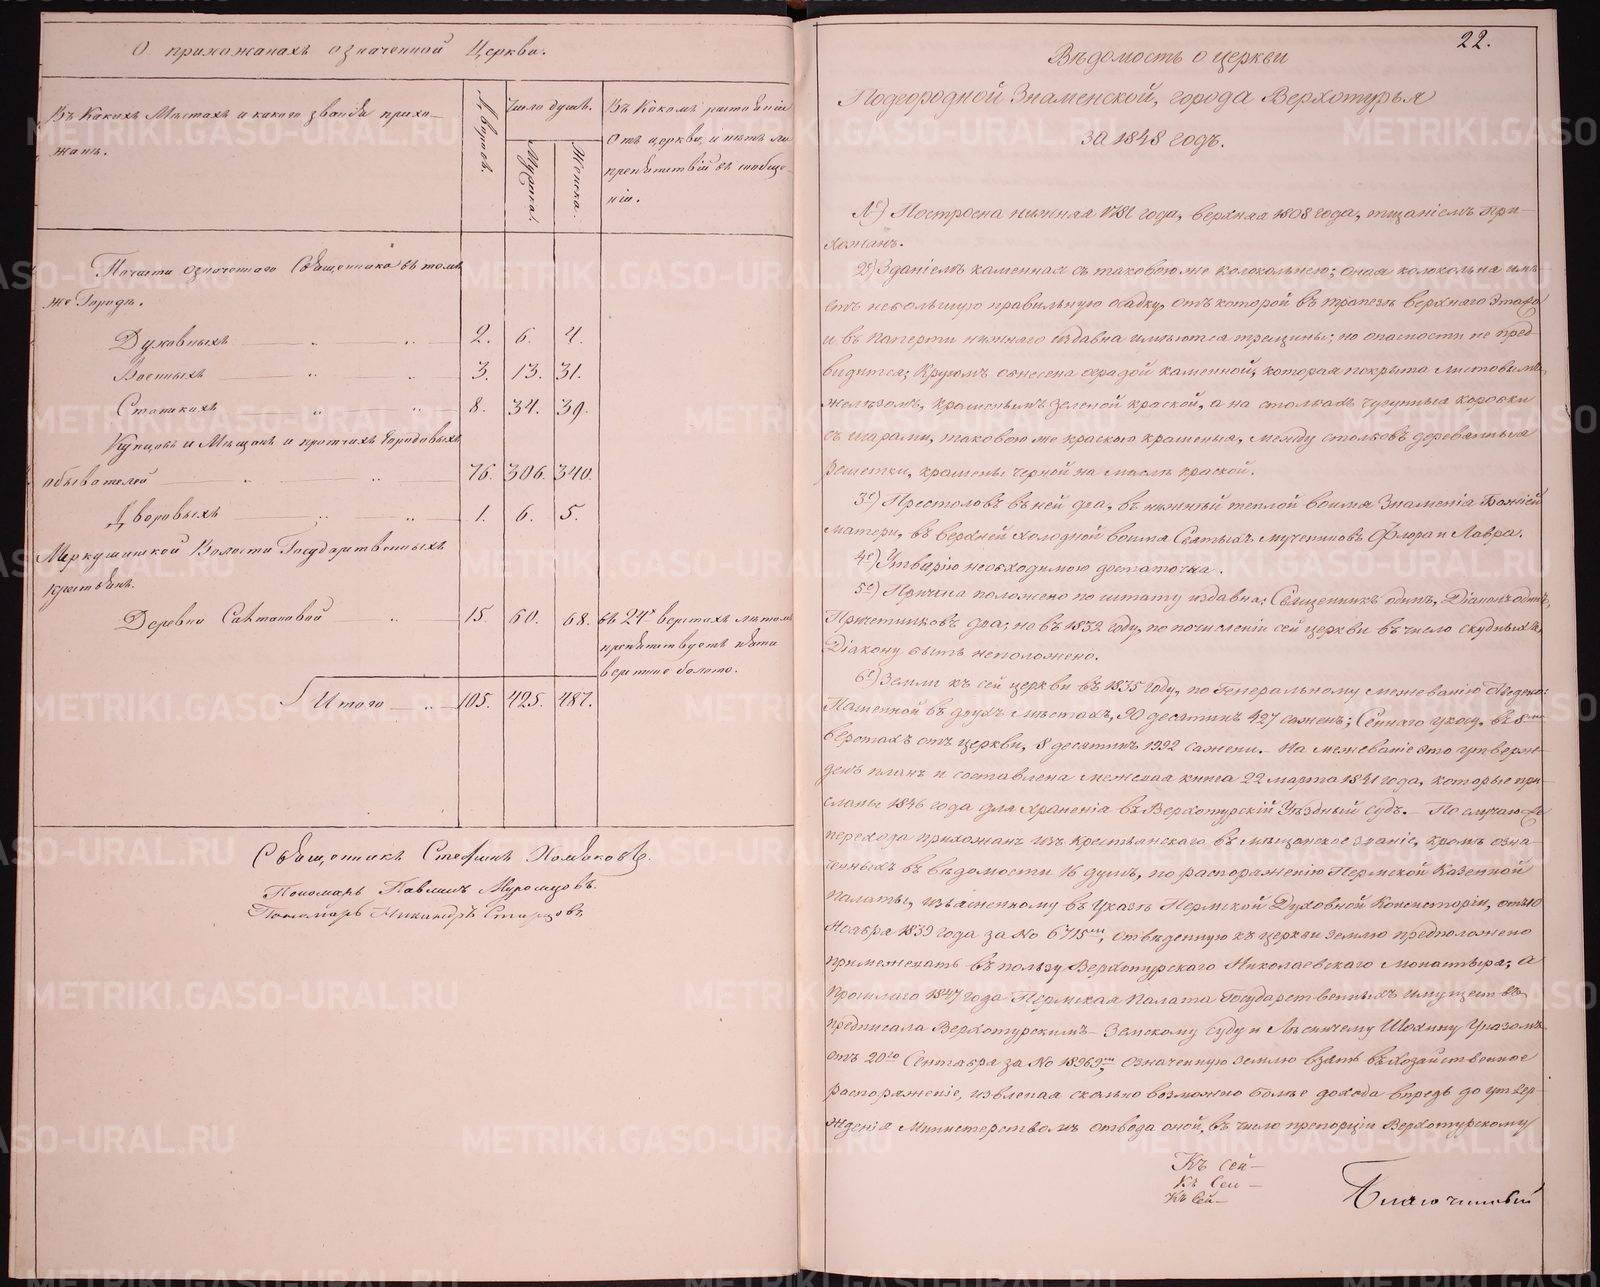 О прихожанахъ означенной Церкви.
Въ Какихъ Мѣстахъ и какого званія прихо-
жанъ.
Дворовъ.
Число душъ.
Мужска.
Женска.
Въ Какомъ разстояніи
Отъ церкви, и нѣтъ ли
препятствій въ сообще-
ніи.
означеннаго Священника въ томъ
же Городѣ.
Духовныхъ 2. 6. 4.
Военныхъ 3. 13. 31.
Статскихъ 8. 34. 39.
Купцовъ и Мѣщанъ и протчихъ Городовыхъ
обывателей 76. 306. 340.
Дворовыхъ 1. 6. 5.
Меркушинской Волости Государственныхъ
крестьянъ.
Деревни 15. 60. 68. въ 24х верстахъ лѣтомъ
препятствуетъ пяти
верстное болото.
Итого 105. 425. 487.
Священникъ Стефанъ Хомяковъ.
Пономарь Павлинъ Муромцовъ
Пономарь Никандръ Старцовъ
22.
Вѣдомость о церкви
Подгородной Знаменской, города Верхотурья
за 1848 годъ.
1е) Построена нижняя 1781 года, верхняя 1808 года, тщаніемъ При-
хожанъ.
2е) Зданіемъ каменная съ таковою же колокольнею; оная колокольня имѣ-
етъ небольшую правильную осадку, отъ которой въ трапезѣ верхняго этажа
и въ паперти нижняго издавна имѣются трещины; но опасности не пред-
видится; Кругомъ обнесена оградой каменной, которая покрыта листовымъ
желѣзомъ, крашенымъ зеленой краской, а на столбахъ чугунныя коробки
съ шарами, таковою же краскою крашеныя, между столбовъ деревянныя
решетки, крашены черной на маслѣ краской.
3е) Престоловъ въ ней два, въ нижней теплой во имя Знаменія Божіей
матери, въ верхней холодной во имя Святыхъ мучениковъ Флора и Лавра.
4е) Утварію необходимою достаточна.
5е) Причта положено по штату издавна: Священникъ одинъ, Діаконъ одинъ,
Причетниковъ два; но въ 1832 году, по почисленіи сей церкви въ число скудныхъ
Діакону быть неположено.
6е) Земли къ сей церкви въ 1835 году, по Генеральному межеванію отведено:
Пашенной въ двухъ мѣстахъ, 90 десятинъ 427 сажень; Сеннаго укосу, въ 8ми
верстахъ отъ церкви, 8 десятинъ 1992 сажени. На межеваніе это утверж-
денъ планъ и составлена межевая книга 22 марта 1841 года, которые при-
сланы 1846 года для храненія въ Верхотурскій Уѣздный Судъ. По случаю
перехода прихожанъ изъ крестьянскаго въ мѣщанское званіе, кромѣ озна-
ченныхъ въ вѣдомости 16 душъ, по распоряженію Пермской Казенной
Палаты, изъясненному въ Указѣ Пермской Духовной Консисторіи, отъ 10
Ноября 1839 года за No 6715мъ, отведенную къ церкви землю предположено
примежевать въ пользу Верхотурскаго Николаевскаго монастыря; а
прошлаго 1847 года Пермская Палата Государственныхъ имуществъ
предписала Верхотурскимъ Земскому Суду и Лѣсничему Шохину Указомъ
отъ 20го Сентября за No 18969мъ, означенную землю взять въ хозяйственное
распоряженіе, извлекая сколько возможно болѣе дохода впредь до утвер-
жденія Министерствомъ отвода оной, въ число препорціи Верхотурскому
Къ сей
Къ сей
Къ сей
Благочинный
METRIKI.GASO-URAL.RU